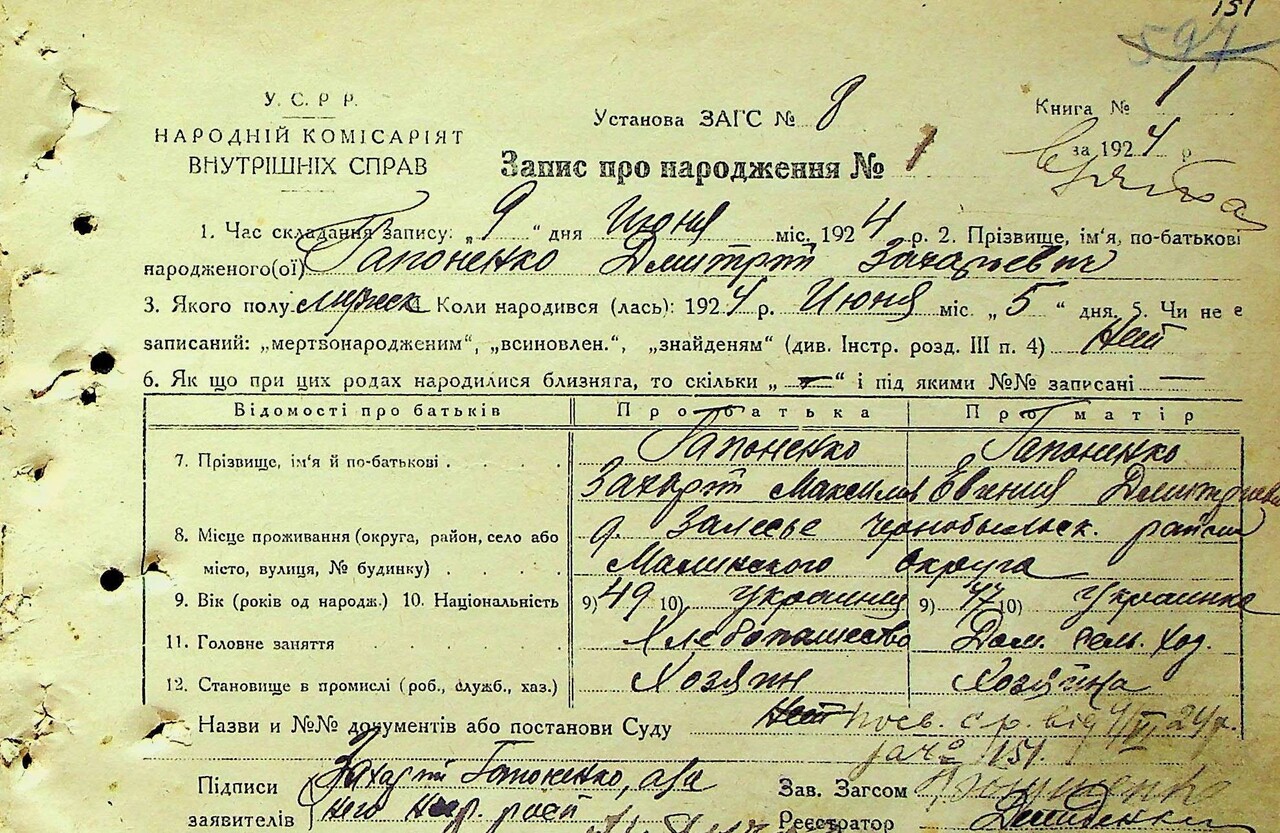 151
597
У. С. Р. Р.
НАРОДНІЙ КОМІСАРІЯТ
ВНУТРІШНІХ СПРАВ
Установа ЗАГС № 8
Книга № 1
за 1924 р
Запис про народження № 1
1. Час складання запису: „9“ дня Июня міс. 1924 р. 2. Прізвище, ім'я, по-батькові
народженого(ої) Гапоненко Дмитрий Захарьевич
3. Якого полу мужск 4. Коли народився (лась): 1924 р. Июня міс. „5“ дня. 5. Чи не є
записаний: „мертвонародженим“, „всиновлен.“, „знайденям“ (див. Інстр. розд. III п. 4) Нет
6. Як що при цих родах народилися близняга, то скільки „—“ і під якими №№ записані —
Відомості про батьків Про батька Про матір
7. Прізвище, ім'я й по-батькові . . . . Гапоненко Гапоненко
Захарий Максимов Евгения Дмитриева
8. Місце проживання (округа, район, село або д. Залесье Чернобыльск. района
місто, вулиця, № будинку) . . . . Малинского Округа
9. Вік (років од народж.) 10. Національність 9) 49 10) Украинец 9) 47 10) Украинка
11. Головне заняття . . . . . Хлебопашество Дом. сель. хоз.
12. Становище в промислі (роб., служб., хаз.) Хозяин Хозяйка
Назви и №№ документів або постанови Суду Нет посв. с. р. від 4/VI 24 р.
за № 151.
Підписи Захарий Гапоненко, а за
заявителів него
Зав. Загсом
Реєстратор